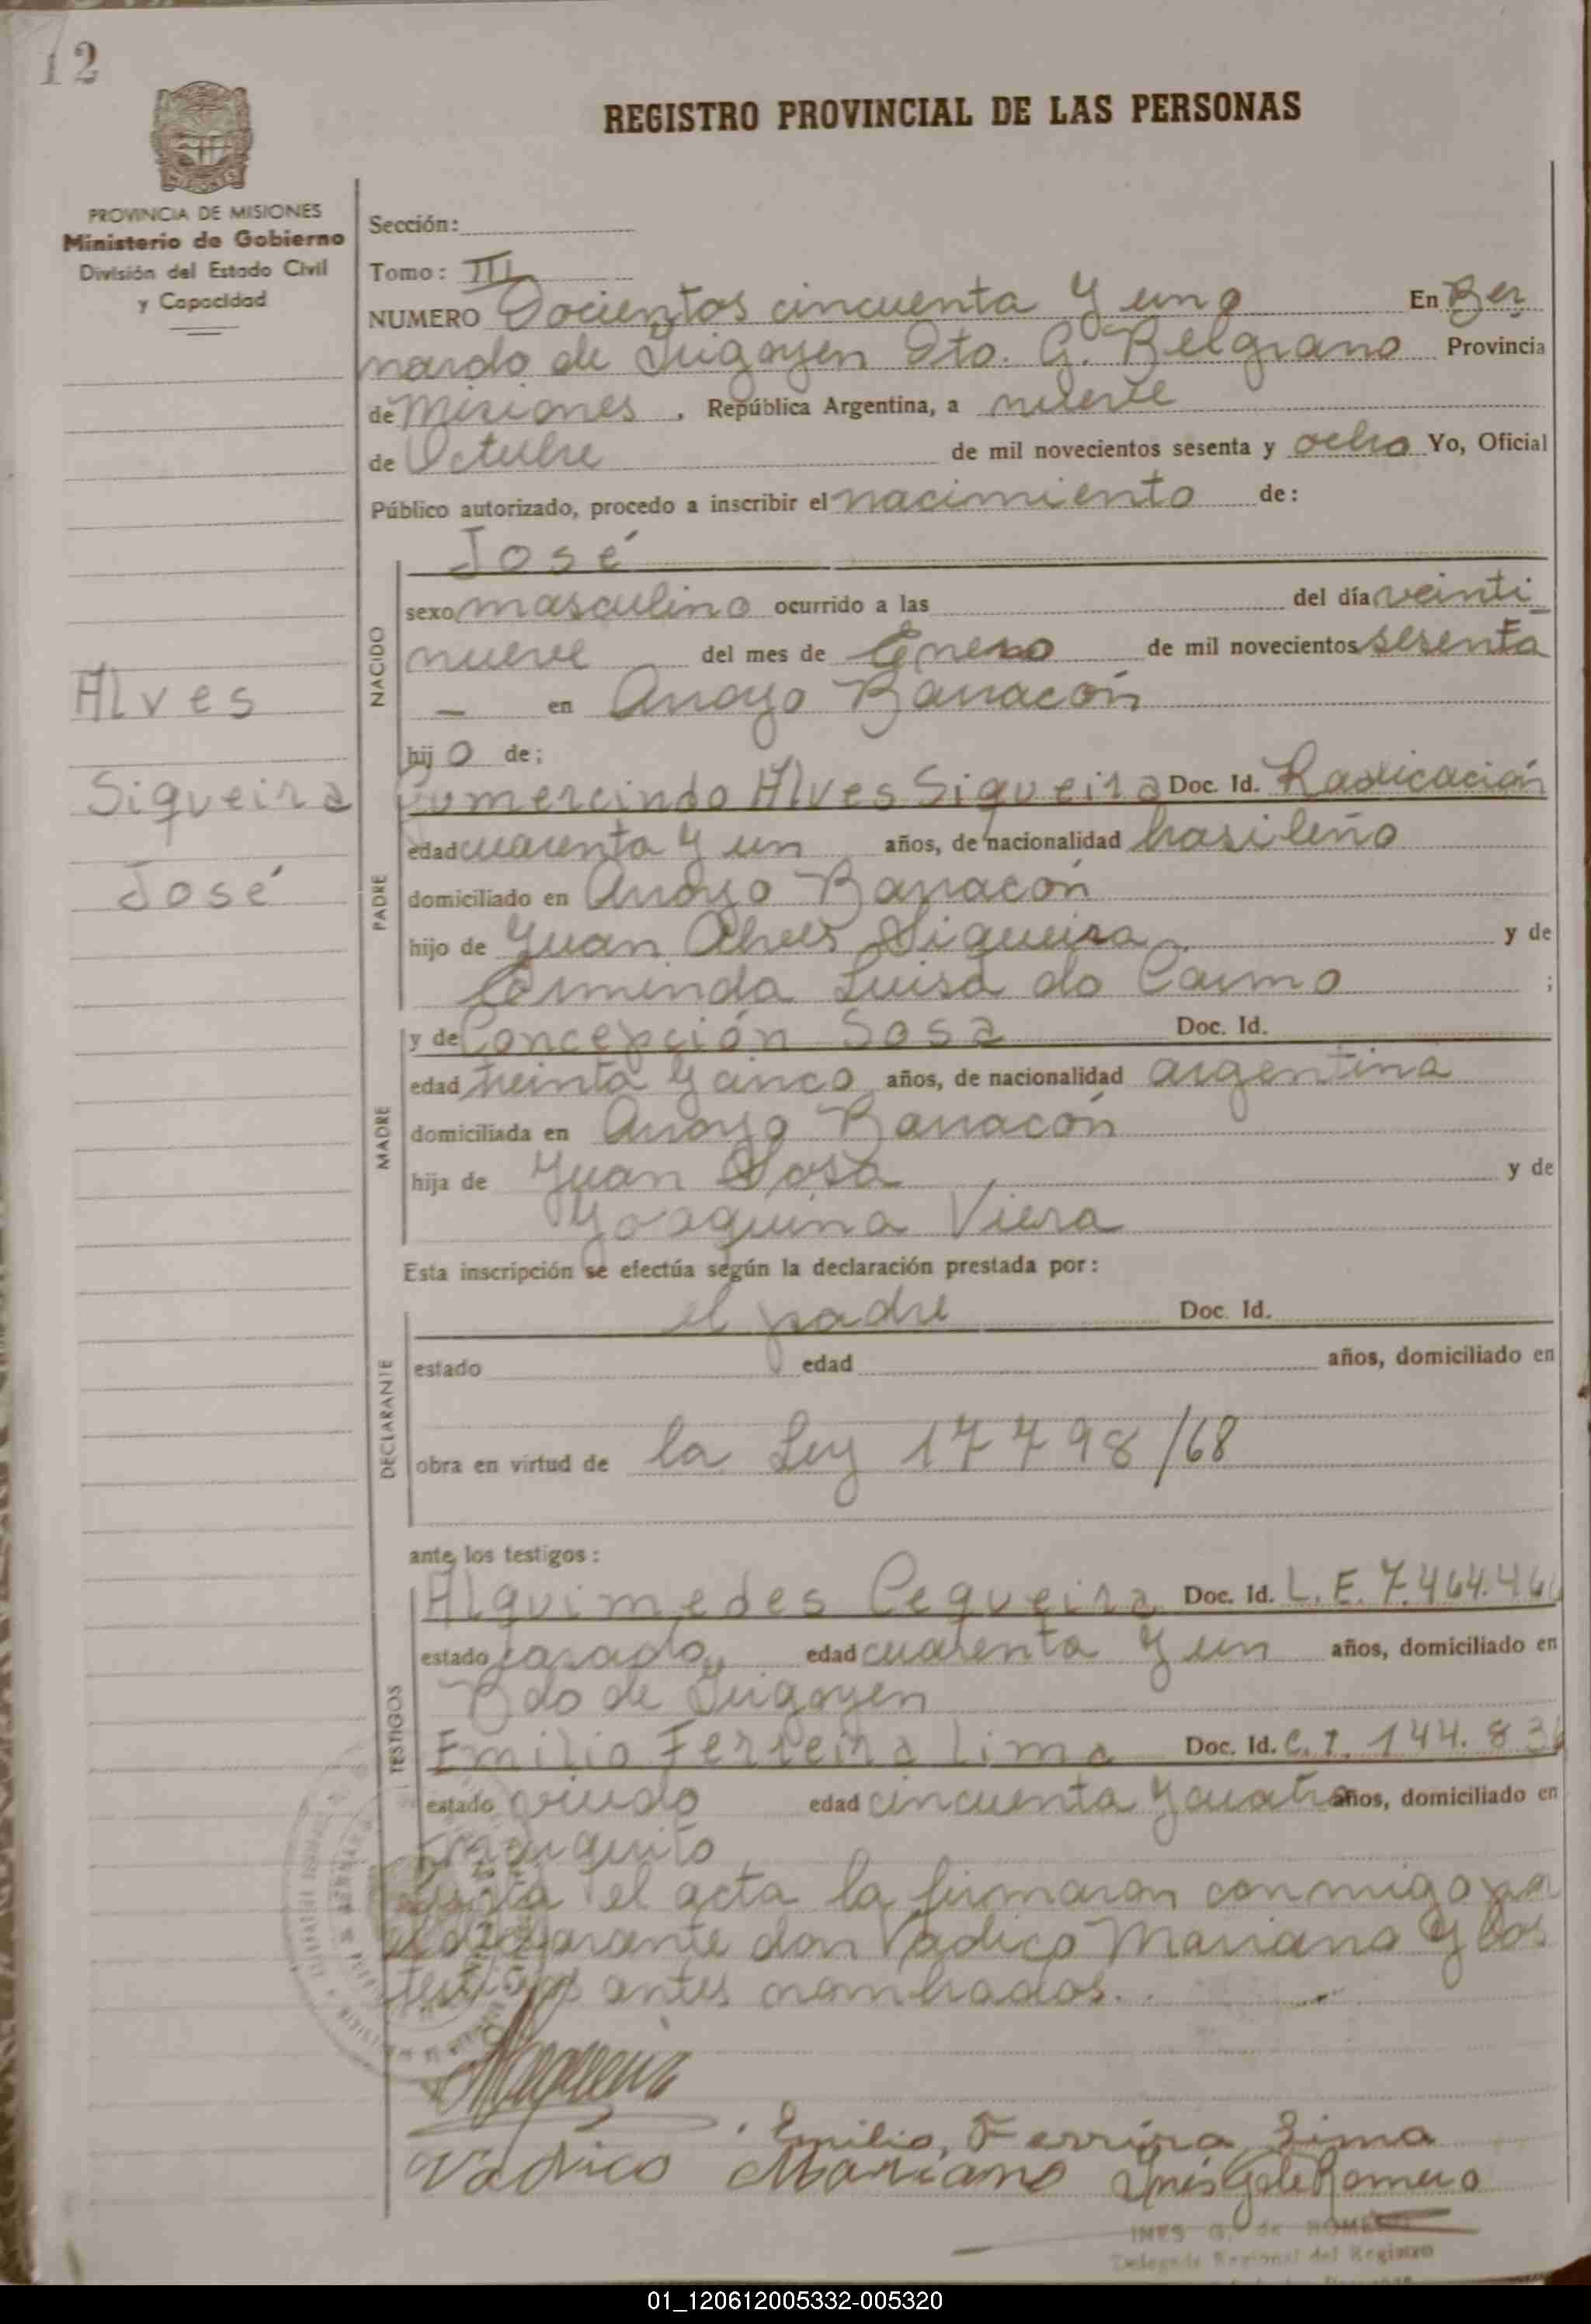 12
REGISTRO PROVINCIAL DE LAS PERSONAS
PROVINCIA DE MISIONES
Ministerio de Gobierno
División del Estado Civil
y Capacidad
Sección:
Tomo: III
NUMERO Docientos cincuenta y uno En Ber
nardo de Irigoyen Dto. G. Belgrano Provincia
de Misiones, República Argentina, a nueve
de Octubre de mil novecientos sesenta y ocho Yo, Oficial
Público autorizado, procedo a inscribir el nacimiento de:
José
NACIDO
sexo masculino ocurrido a las del día veinti
nueve del mes de Enero de mil novecientos sesenta
— en Arroyo Barracón
hijo de:
Alves
Siqueira
José
PADRE
Gumercindo Alves Siqueira Doc. Id. Radicación
edad cuarenta y un años, de nacionalidad brasileño
domiciliado en Arroyo Barracón
hijo de Juan Alves Siqueira y de
Luisa do Carmo ;
MADRE
y de Concepción Sosa Doc. Id.
edad treinta y cinco años, de nacionalidad argentina
domiciliada en Arroyo Barracón
hija de Juan Sosa y de
Joaquina Viera
Esta inscripción se efectúa según la declaración prestada por:
DECLARANTE
el padre Doc. Id.
estado edad años, domiciliado en
obra en virtud de la Ley 17798/68
ante los testigos:
TESTIGOS
Alquimedes Cequeira Doc. Id. L. E. 7.464.46
estado casado edad cuarenta y un años, domiciliado en
Bdo de Irigoyen
Emilio Ferreira Lima Doc. Id. C. I. 144.83
estado viudo edad cincuenta y cuatro años, domiciliado en
el acta la firmaron conmigo por
el declarante don Vadico Mariano y los
testigos antes nombrados.
Emilio, Ferrira Lima
Vadico Mariano Inés G de Romero
INES G. de ROMERO
Delegada Regional del Registro
01_120612005332-005320